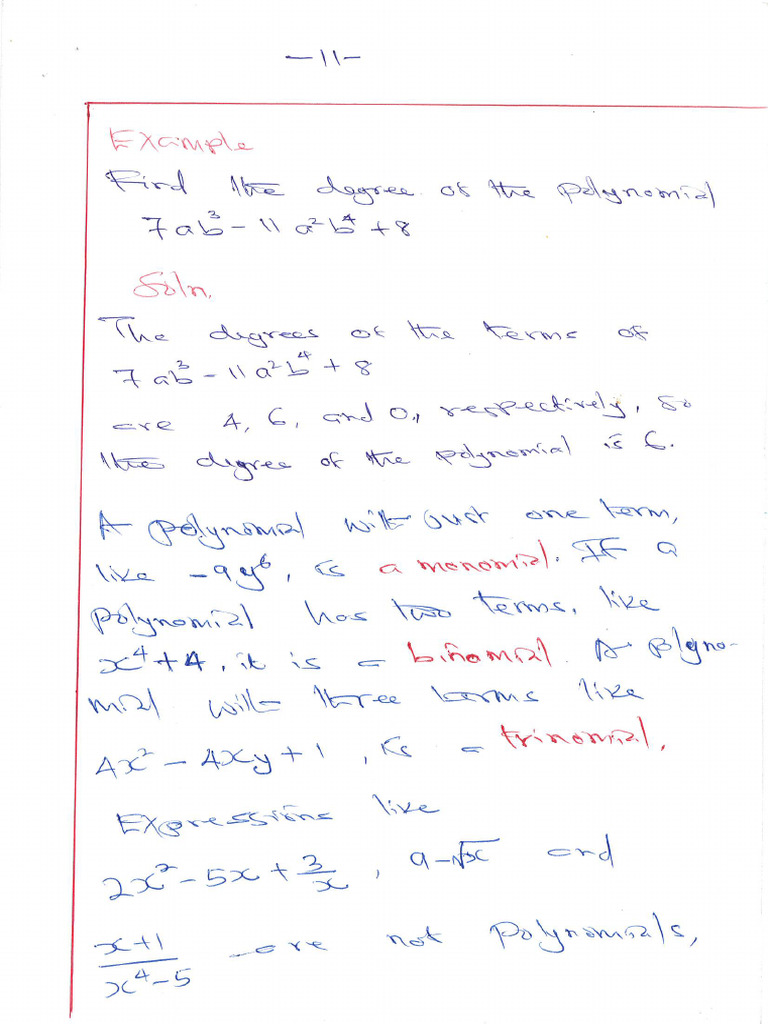 -11-
Example
Find the degree of the polynomial
7ab³ - 11a²b⁴ + 8
Soln.
The degrees of the terms of
7ab³ - 11a²b⁴ + 8
are 4, 6, and 0, respectively, so
the degree of the polynomial is 6.
A polynomial with just one term,
like -9y⁶, is a monomial. If a
polynomial has two terms, like
x⁴ + 4, it is a binomial. A polyno-
mial with three terms like
4x² - 4xy + 1, is a trinomial.
Expressions like
2x² - 5x + 3/x, 9 - √x and
(x+1)/(x⁴-5) are not polynomials,